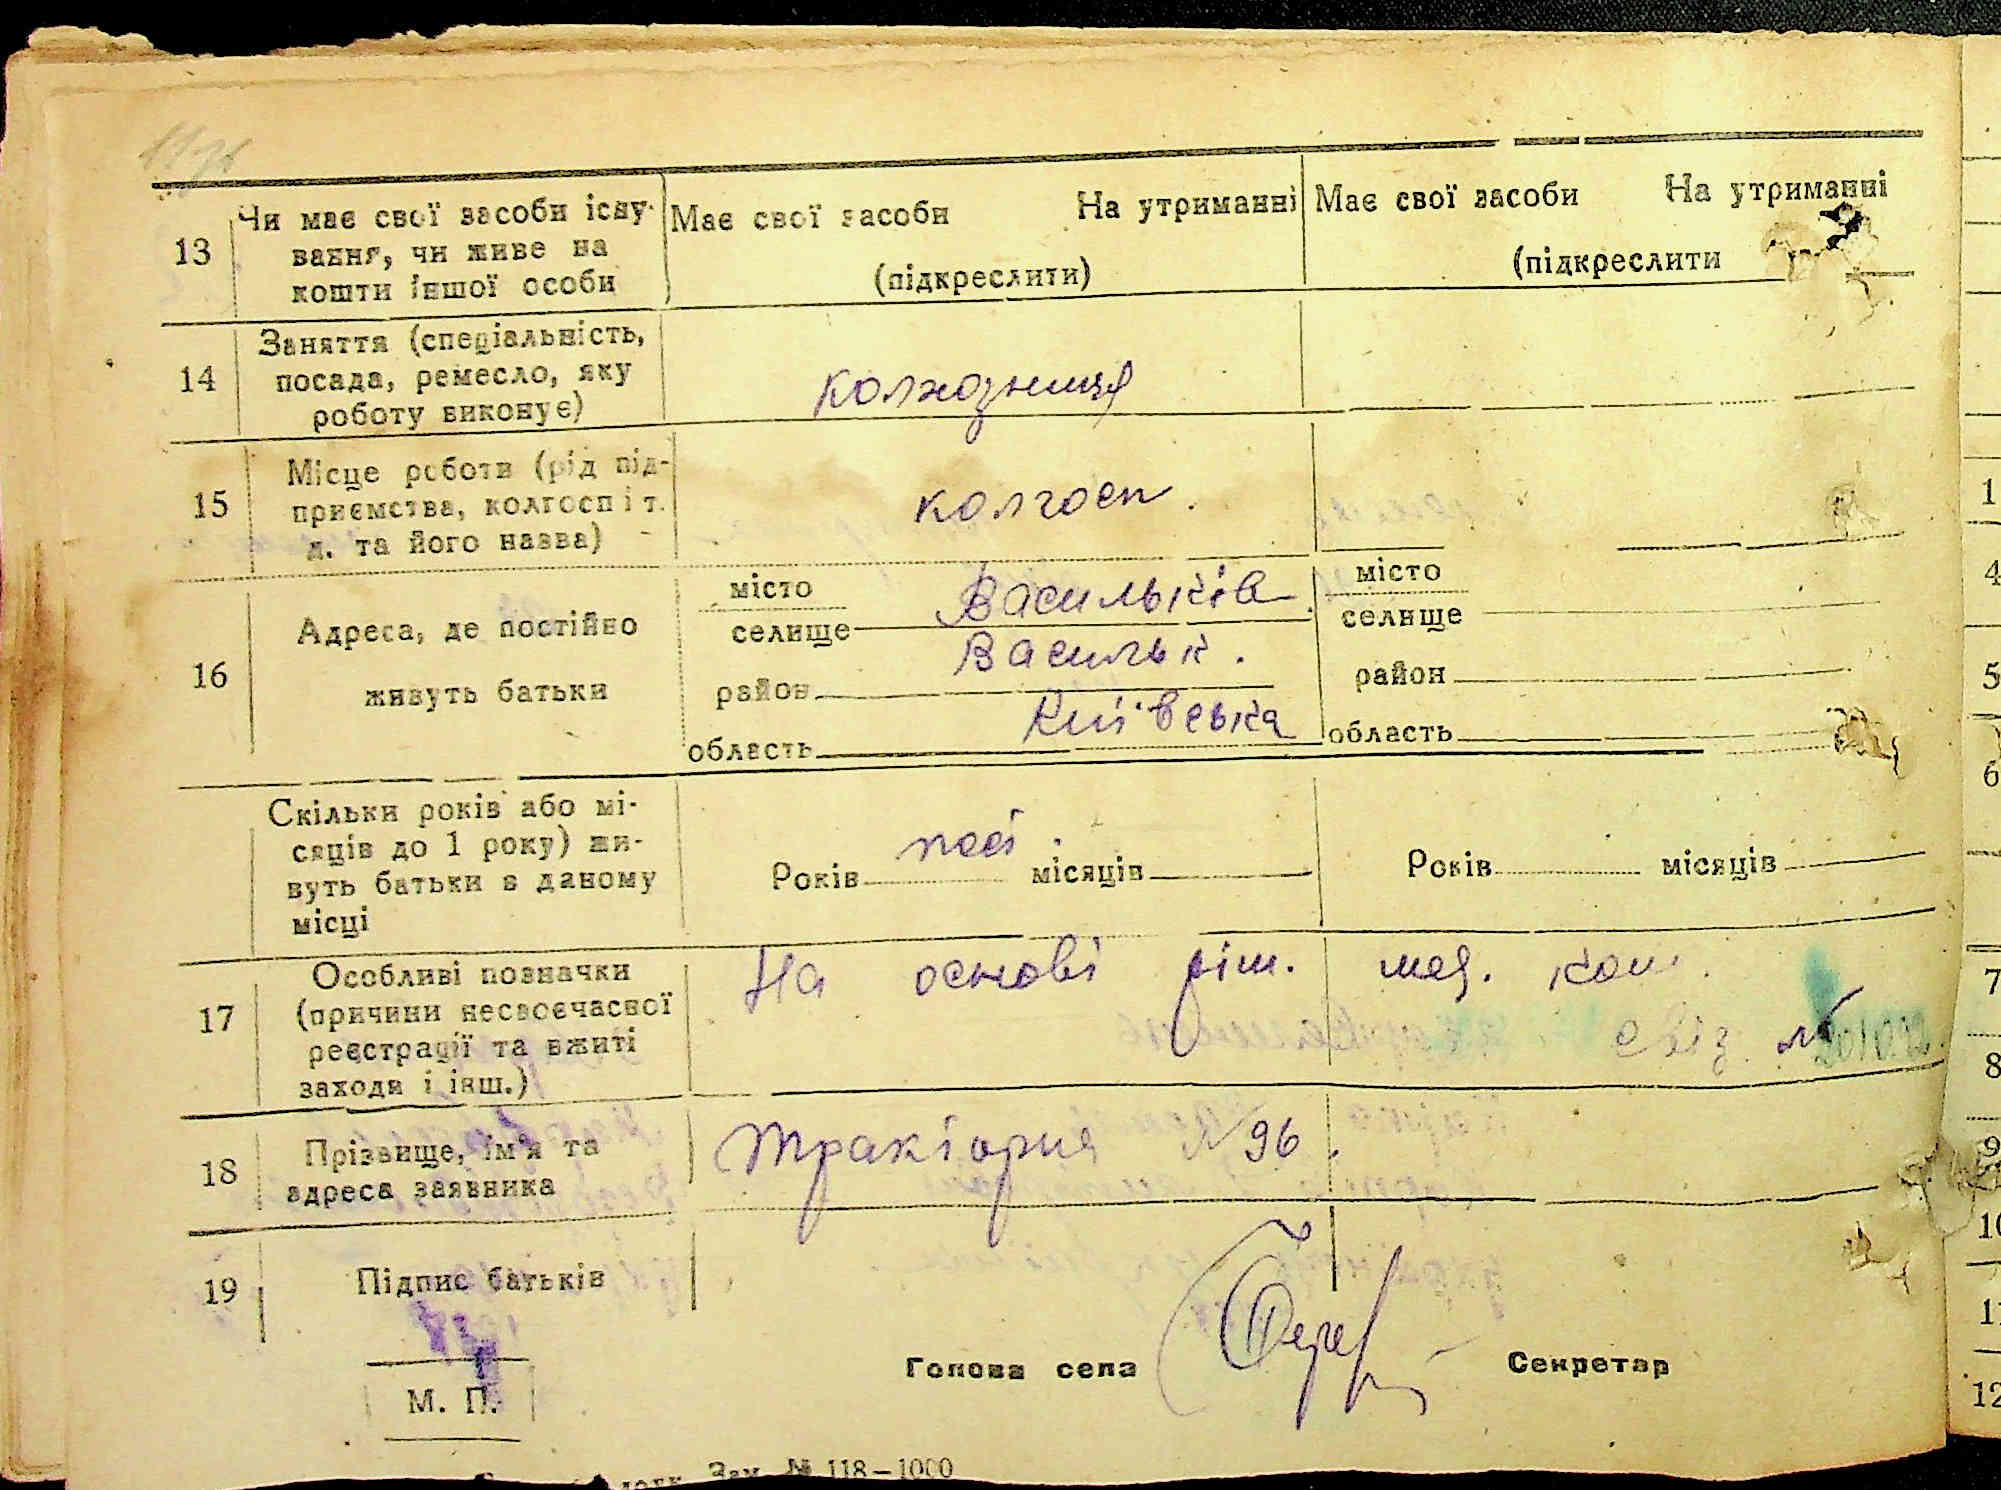 13 Чи має свої засоби існу-
вання, чи живе на
кошти іншої особи
Має свої засоби На утриманні
(підкреслити)
Має свої засоби На утриманні
(підкреслити
14 Заняття (спеціальність,
посада, ремесло, яку
роботу виконує)
колхозниця
15 Місце роботи (рід під-
приємства, колгосп і т.
д. та його назва)
колгосп.
16 Адреса, де постійно
живуть батьки
місто
селище Васильків
район Васильк.
область Київська
місто
селище
район
область
Скільки років або мі-
сяців до 1 року) жи-
вуть батьки в даному
місці
Років пост. місяців
Років місяців
17 Особливі позначки
(причини несвоєчасної
реєстрації та вжиті
заходи і інш.)
На основі ріш. мед. ком.
свід. №
18 Прізвище, ім'я та
адреса заявника
Тракторна № 96.
19 Підпис батьків
М. П.
Голова села Секретар
Зам. № 118—1000